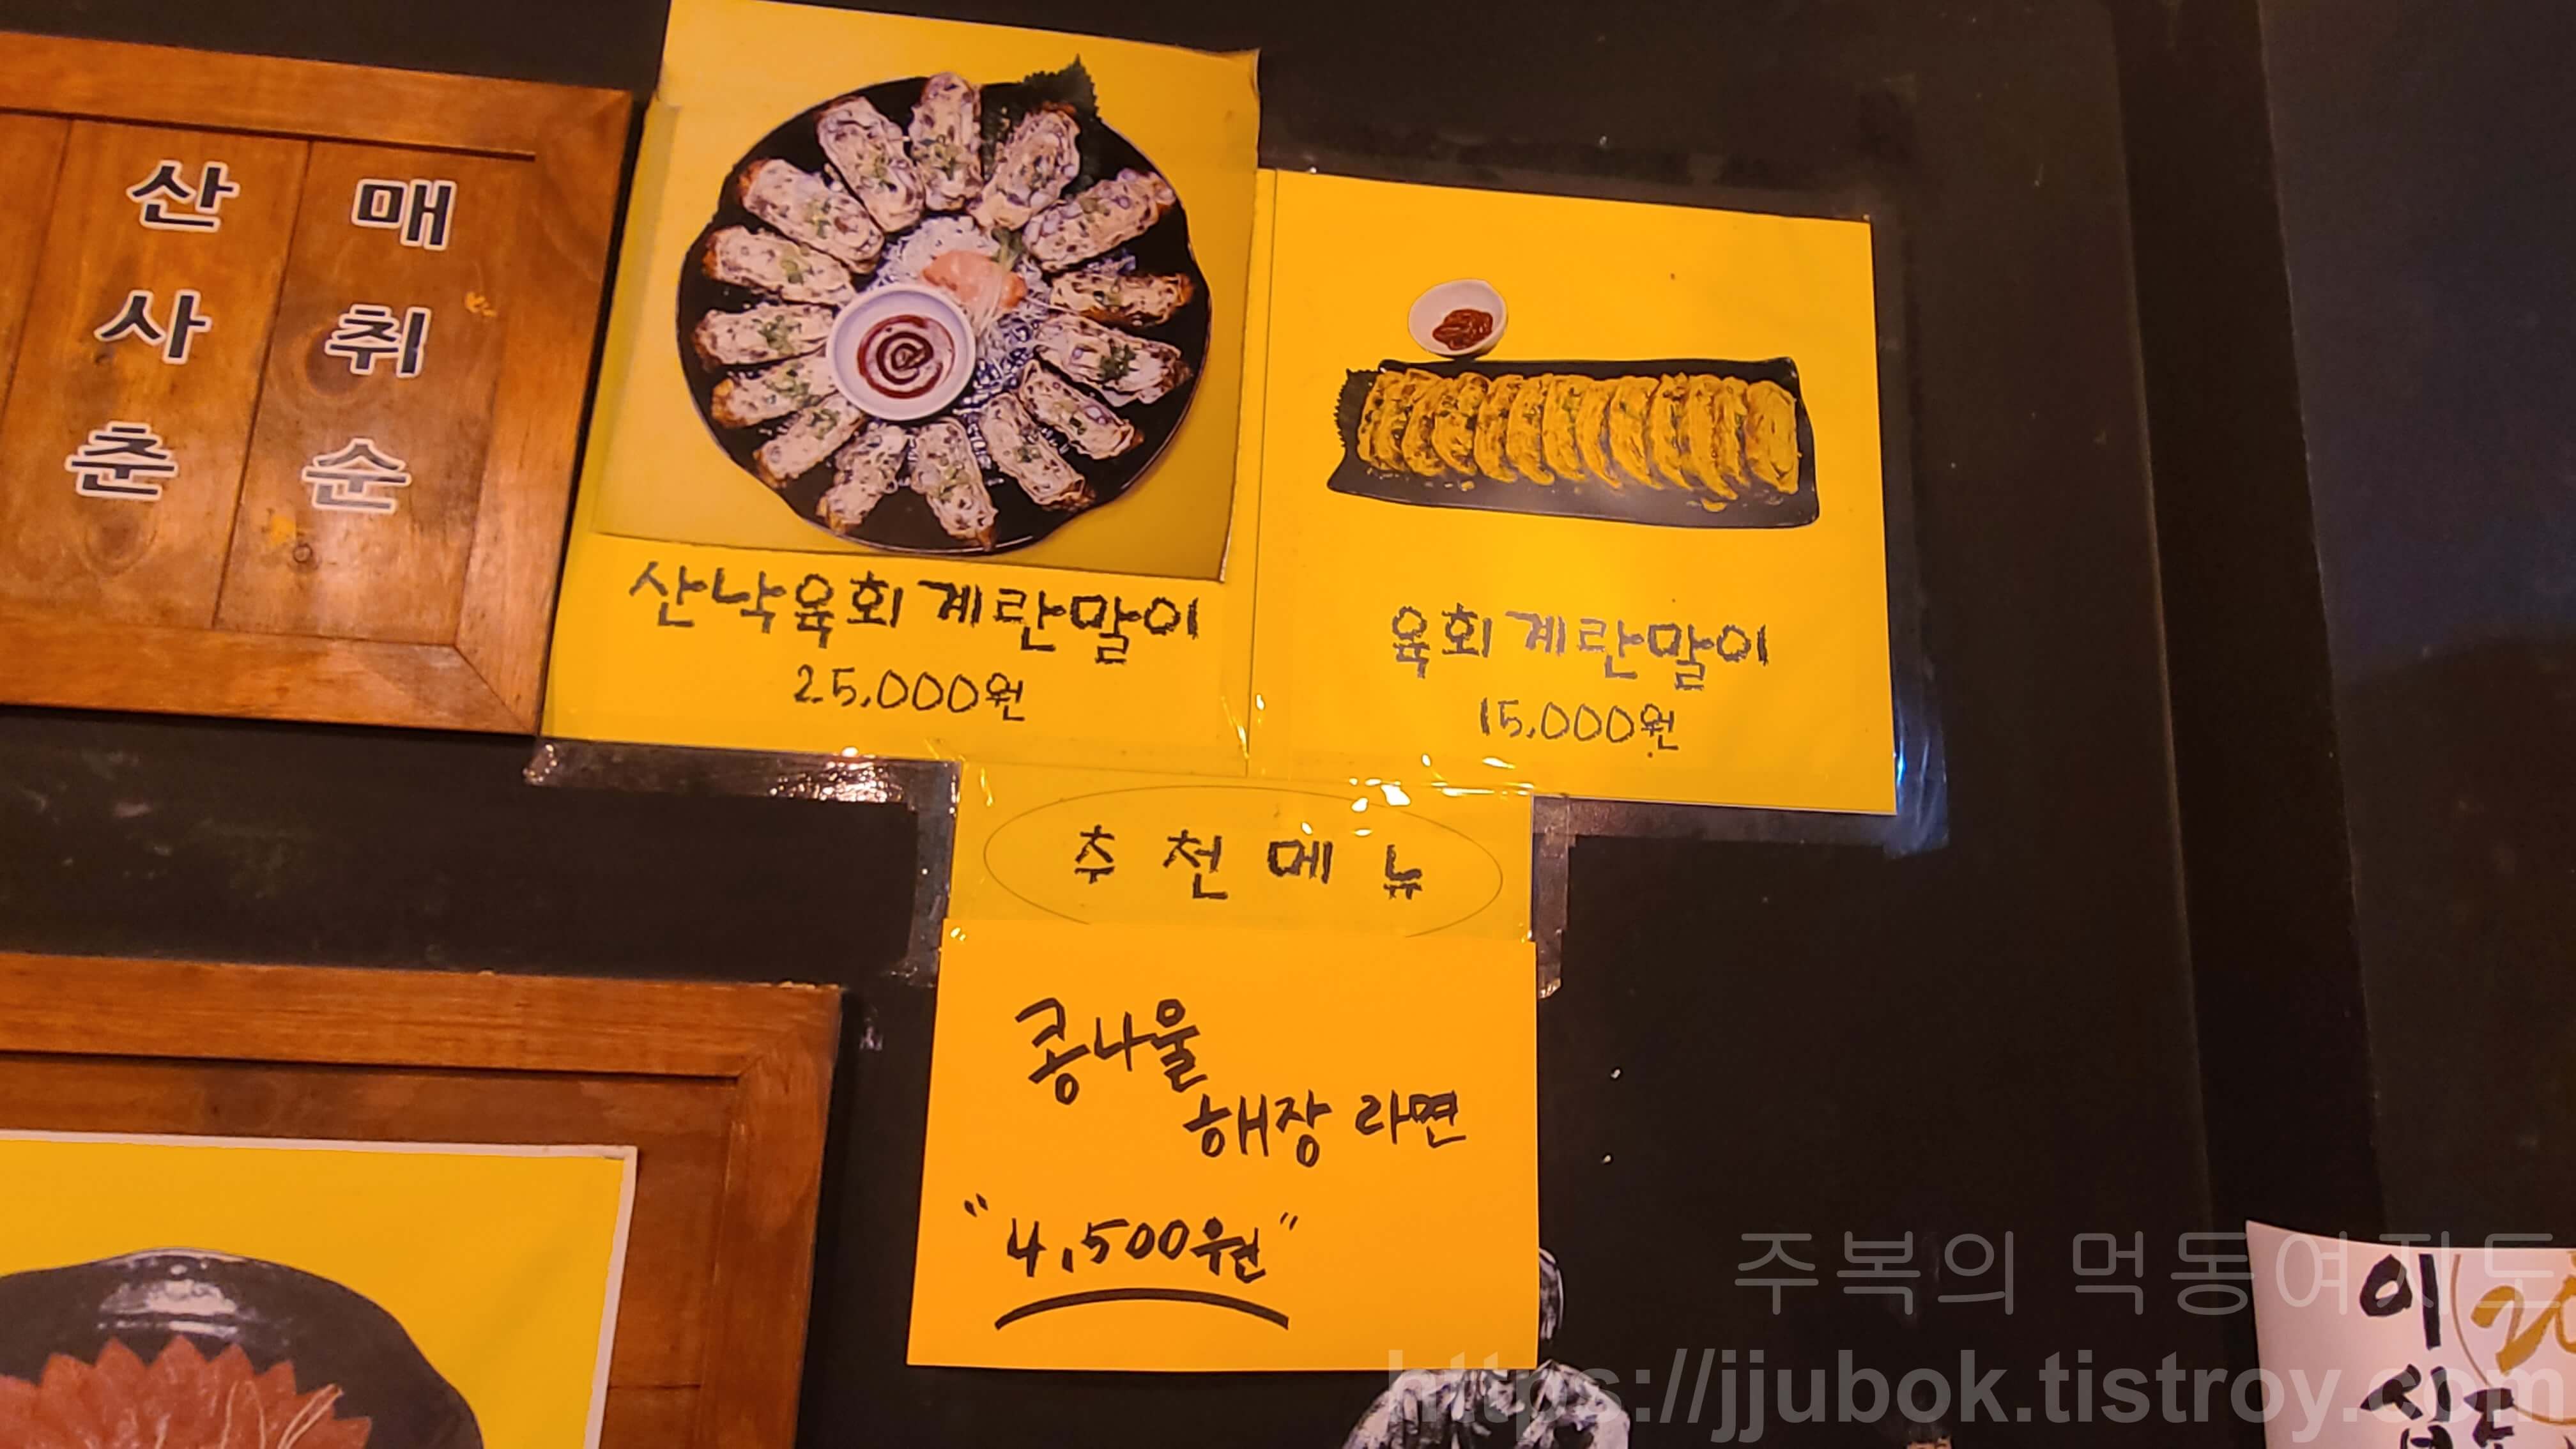 매취순
산사춘
산낙육회계란말이
25,000원
육회계란말이
15,000원
추천메뉴
콩나물
해장 라면
"4,500원"
주복의 먹동여지도
https://jjubok.tistroy.com
이